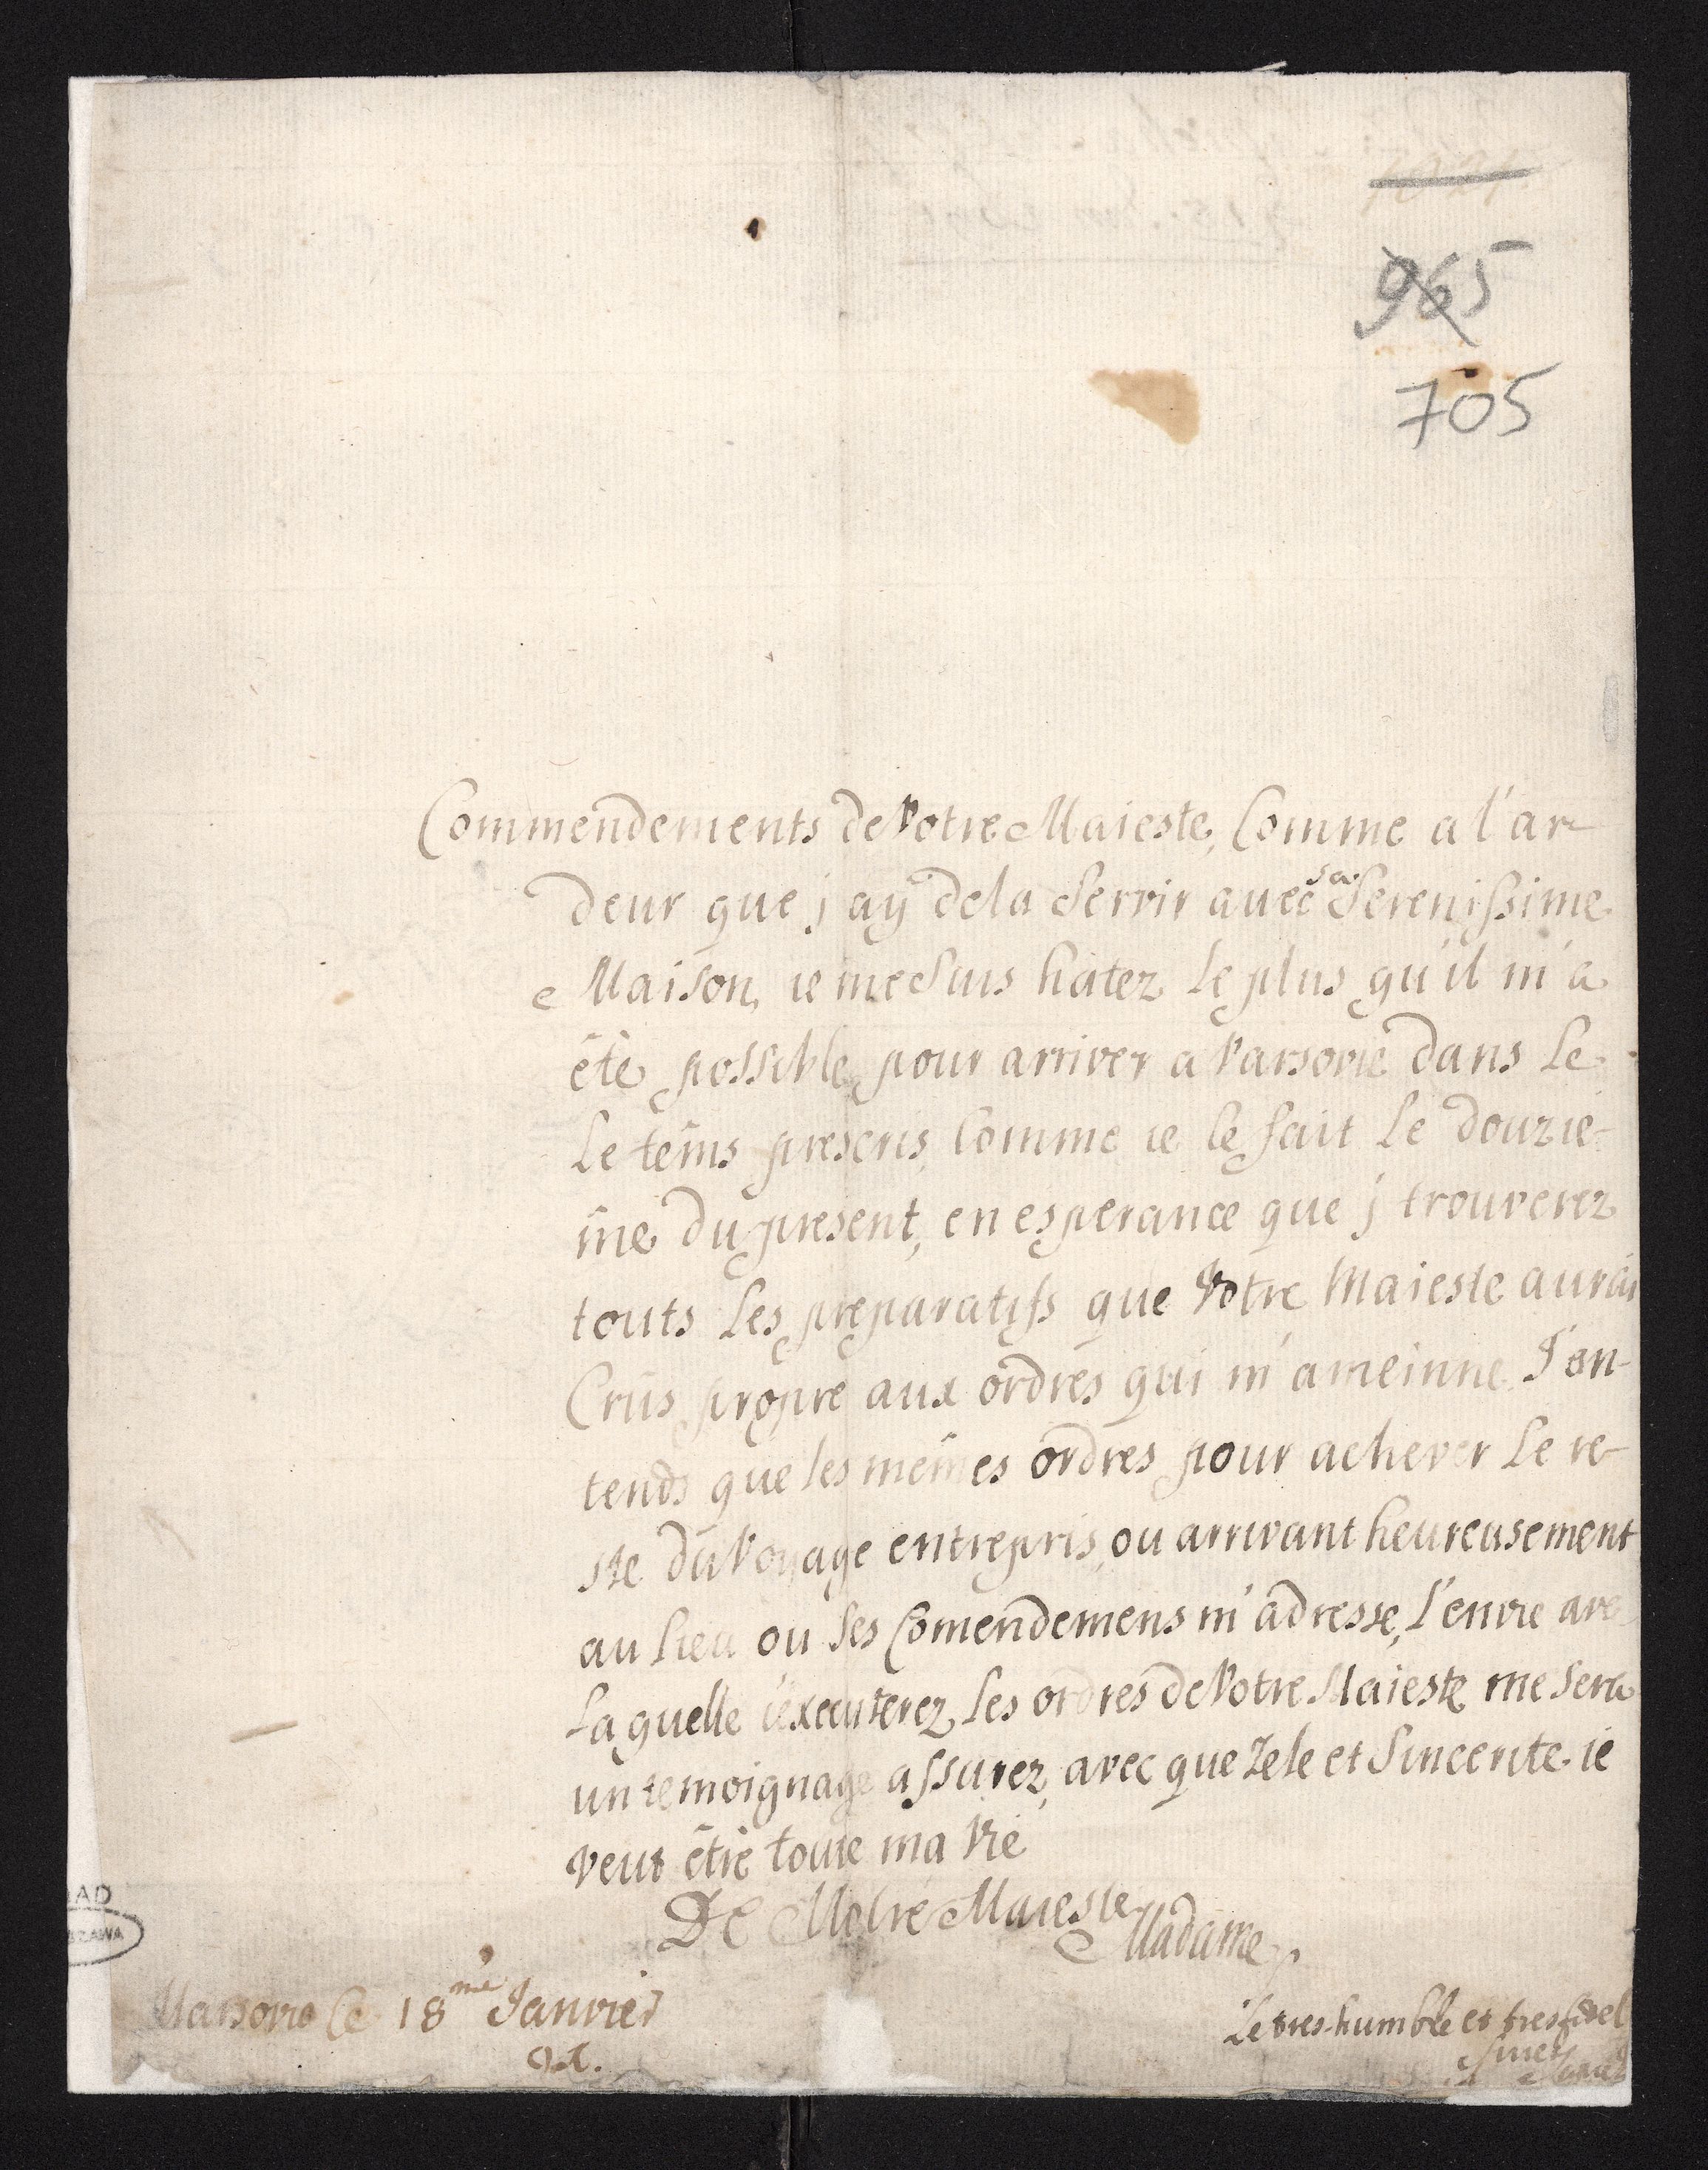 965
705
Commendements de Votre Maieste, Comme a l'ar-
deur que j ay de la Servir avec sa Serenissime
Maison, ie me suis hatez le plus qu'il m'a
été possible pour arriver a Varsovie dans le
le tems prescris, Comme ie le fait le douzié-
me du present, en esperance que j trouverez
touts les preparatifs que Votre Maieste aurai
Crûs propre aux ordres qui m'ameinne. J'en-
tends que les mémes ordres pour achever le re-
ste du Voyage entrepris, ou arrivant heureusement
au lieu ou ses Comendemens m'adresse, l'envie ave
laquelle iexecuterez les ordres de Votre Maieste me sera
un temoignage assurez, avec que Zele et Sincerite ie
veut étre toute ma Vie
De Votre Maieste
Madame
Varsovie le 18me Janvier
Le tres-humble et tres fidel